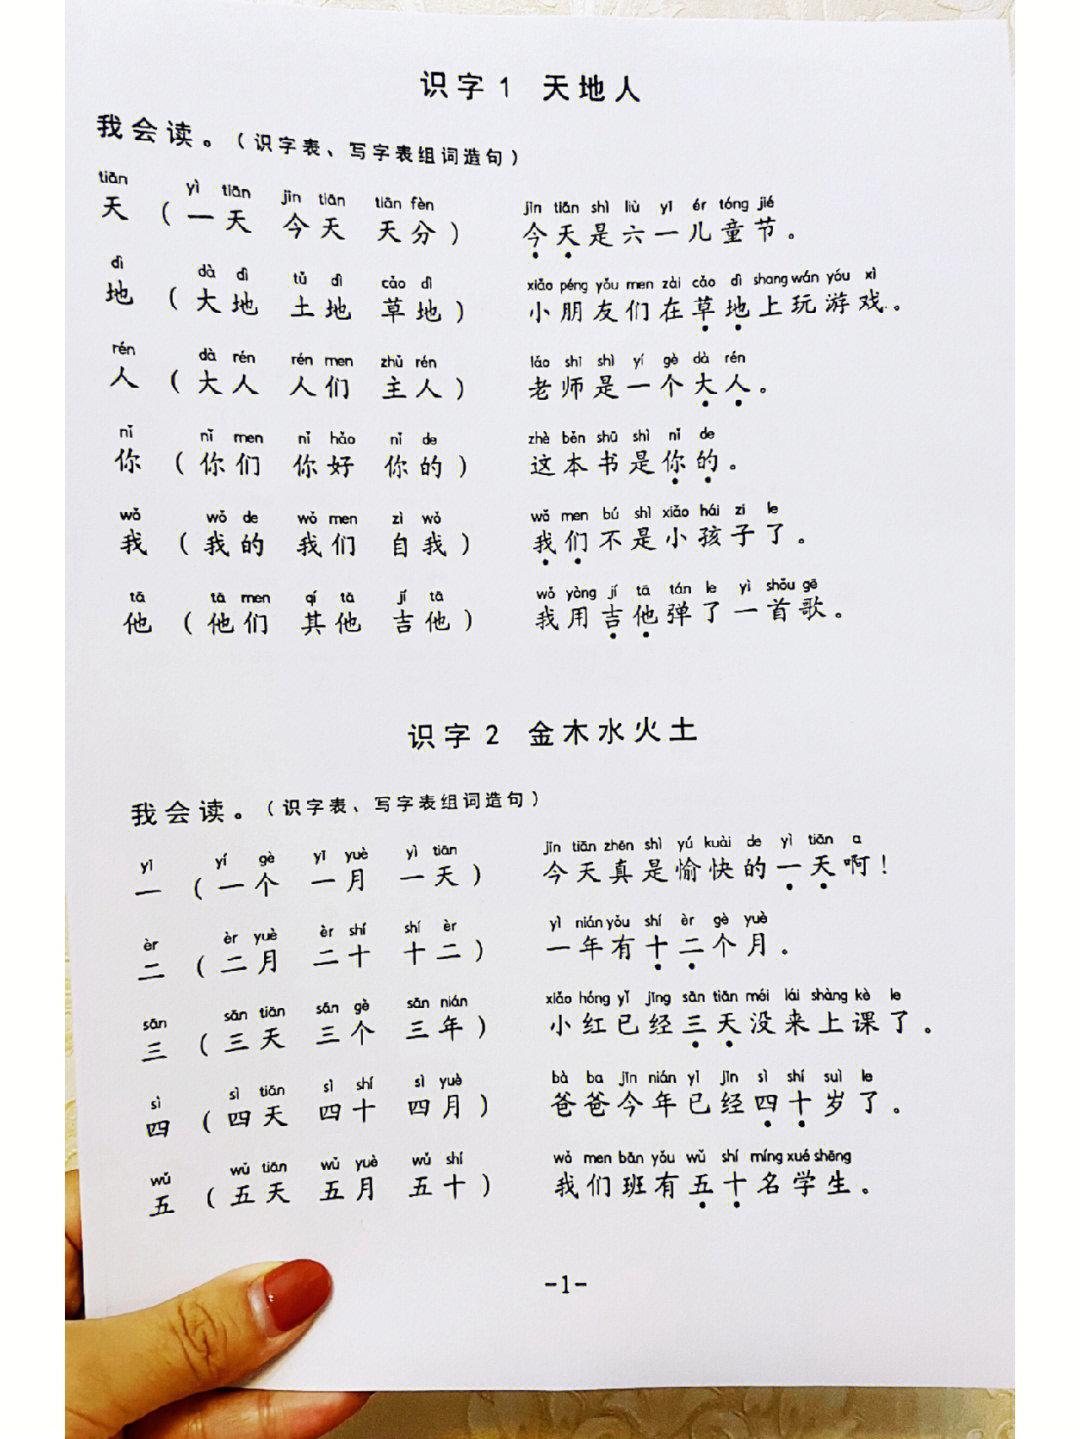 识字1 天地人
我会读。(识字表、写字表组词造句)
tiān yì tiān jīn tiān tiān fèn jīn tiān shì liù yī ér tóng jié
天 (一天 今天 天分) 今天是六一儿童节。
dì dà dì tǔ dì cǎo dì xiǎo péng yǒu men zài cǎo dì shang wán yóu xì
地 (大地 土地 草地) 小朋友们在草地上玩游戏。
rén dà rén rén men zhǔ rén lǎo shī shì yí gè dà rén
人 (大人 人们 主人) 老师是一个大人。
nǐ nǐ men nǐ hǎo nǐ de zhè běn shū shì nǐ de
你 (你们 你好 你的) 这本书是你的。
wǒ wǒ de wǒ men zì wǒ wǒ men bú shì xiǎo hái zi le
我 (我的 我们 自我) 我们不是小孩子了。
tā tā men qí tā jí tā wǒ yòng jí tā tán le yì shǒu gē
他 (他们 其他 吉他) 我用吉他弹了一首歌。
识字2 金木水火土
我会读。(识字表、写字表组词造句)
yī yí gè yī yuè yì tiān jīn tiān zhēn shì yú kuài de yì tiān a
一 (一个 一月 一天) 今天真是愉快的一天啊!
èr èr yuè èr shí shí èr yì nián yǒu shí èr gè yuè
二 (二月 二十 十二) 一年有十二个月。
sān sān tiān sān gè sān nián xiǎo hóng yǐ jīng sān tiān méi lái shàng kè le
三 (三天 三个 三年) 小红已经三天没来上课了。
sì sì tiān sì shí sì yuè bà ba jīn nián yǐ jīn sì shí suì le
四 (四天 四十 四月) 爸爸今年已经四十岁了。
wǔ wǔ tiān wǔ yuè wǔ shí wǒ men bān yǒu wǔ shí míng xué shēng
五 (五天 五月 五十) 我们班有五十名学生。
-1-